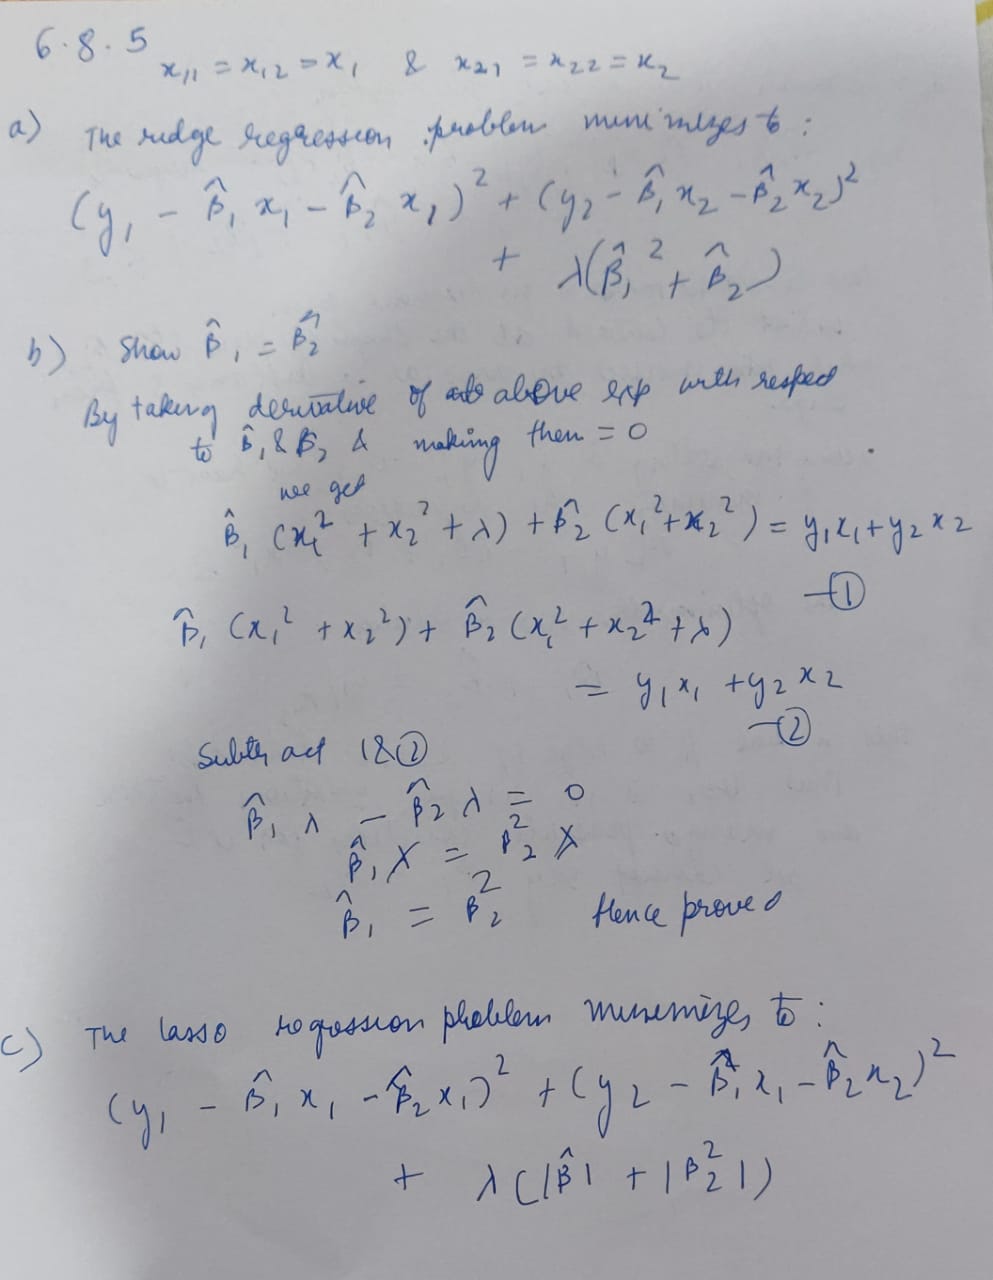 6.8.5
x₁₁ = x₁₂ = x₁ & x₂₁ = x₂₂ = x₂
a) The ridge regression problem minimizes to :
(y₁ - β̂₁ x₁ - β̂₂ x₁)² + (y₂ - β̂₁ x₂ - β̂₂ x₂)²
+ λ(β̂₁² + β̂₂)
b) Show β̂₁ = β̂₂
By taking derivative of above exp with respect
to β̂₁ & β₂ & making them = 0
we get
β̂₁ (x₁² + x₂² + λ) + β̂₂ (x₁² + x₂²) = y₁x₁ + y₂x₂
—①
β̂₁ (x₁² + x₂²) + β̂₂ (x₁² + x₂² + λ)
= y₁x₁ + y₂x₂
—②
Subtract 1&②
β̂₁ λ - β̂₂ λ = 0
β̂₁ λ = β₂² λ
β̂₁ = β₂² Hence proved
c) The lasso regression problem minimizes to :
(y₁ - β̂₁ x₁ - β̂₂ x₁)² + (y₂ - β̂₁ x₁ - β̂₂ x₂)²
+ λ(|β̂| + |β₂²|)